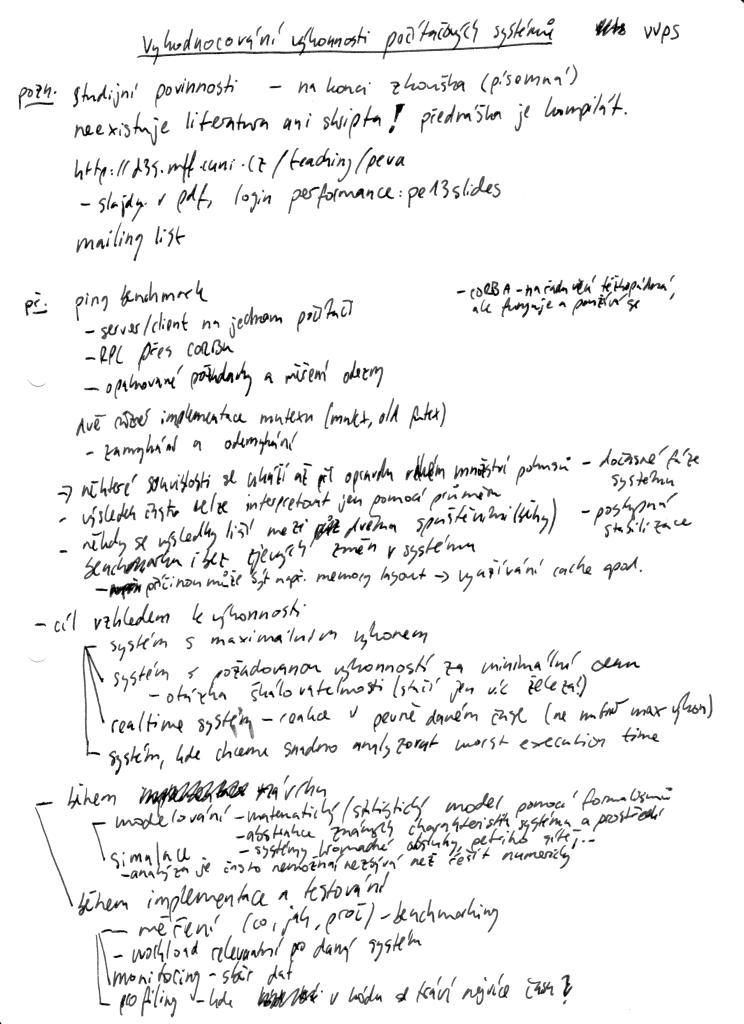 Vyhodnocování výkonnosti počítačových systémů VVPS
pozn. studijní povinnosti – na konci zkouška (písemná)
neexistuje literatura ani skripta! přednáška je kompilát.
http://d3s.mff.cuni.cz/teaching/peva
– slajdy v pdf, login performance: pe13slides
mailing list
př. ping benchmark
– CORBA – na řadu věcí těžkopádná,
ale funguje a používá se
– server/client na jednom počítači
– RPC přes CORBu
– opakované požadavky a měření odezvy
dvě různé implementace mutexu (mutex, old futex)
– zamykání a odemykání
→ některé souvislosti se ukáží až při opravdu velkém množství pokusů – dočasné fáze
systému
– výsledek často nelze interpretovat jen pomocí průměru
– postupná
stabilizace
– někdy se výsledky liší mezi dvěma spuštěními (běhy)
benchmarku i bez zjevných změn v systému
– příčinou může být např. memory layout → využívání cache apod.
– cíl vzhledem k výkonnosti
– systém s maximálním výkonem
systém s požadovanou výkonností za minimální cenu
– otázka škálovatelnosti (stačí jen víc železa?)
realtime systém – reakce v pevně daném čase (ne nutně max výkon)
– systém, kde chceme snadno analyzovat worst execution time
– během návrhu
– modelování – matematický/statistický model pomocí formalismů
– abstrakce známých charakteristik systému a prostředí
– systémy hromadné obsluhy, petriho sítě, ...
simulace
– analýza je často nemožná, nezbývá než řešit numericky
během implementace a testování
– měření (co, jak, proč) – benchmarking
– workload relevantní pro daný systém
monitoring – sběr dat
– profiling – kde v kódu se tráví nejvíce času?